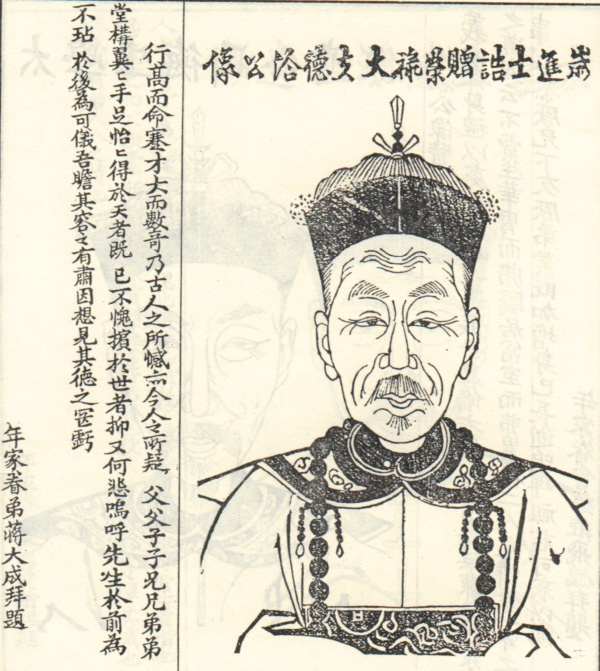 歲進士誥贈榮祿大夫德洽公像
行高而命蹇才大而數奇乃古人之所憾亦今人之所疑父父子子兄兄弟弟
堂構翼〻手足怡〻得於天者既已不愧擯於世者抑又何悲嗚呼先生於前為
不玷於後為可儀吾瞻其容〻有肅因想見其德之罔虧
年家眷弟蔣大成拜題